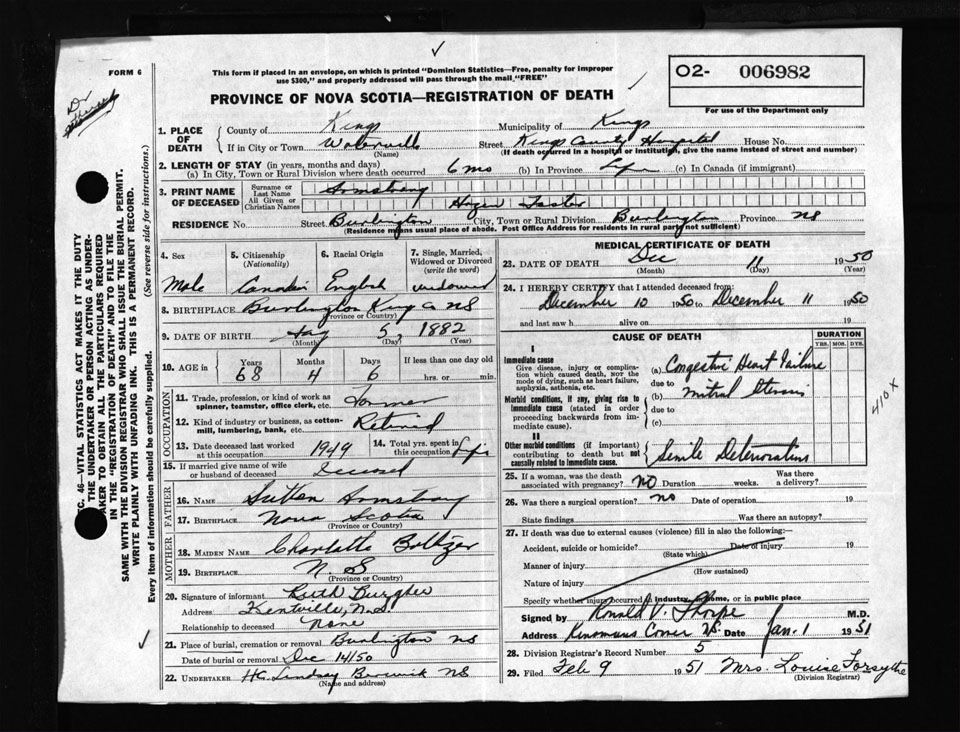 FORM 6
This form if placed in an envelope, on which is printed "Dominion Statistics—Free, penalty for improper
use $300," and properly addressed will pass through the mail "FREE"
O2- 006982
For use of the Department only
PROVINCE OF NOVA SCOTIA—REGISTRATION OF DEATH
1. PLACE OF DEATH
County of Kings Municipality of Kings
If in City or Town Waterville Street Kings County Hospital House No.
(Name) (If death occurred in a hospital or institution, give the name instead of street and number)
2. LENGTH OF STAY (in years, months and days)
(a) In City, Town or Rural Division where death occurred 6 mo (b) In Province Life (c) In Canada (if immigrant)
3. PRINT NAME OF DECEASED
Surname or Last Name Armstrong
All Given or Christian Names Hazen Foster
RESIDENCE No. Street Burlington City, Town or Rural Division Burlington Province NS
(Residence means usual place of abode. Post Office Address for residents in rural parts not sufficient)
4. Sex
Male
5. Citizenship (Nationality)
Canadian
6. Racial Origin
English
7. Single, Married, Widowed or Divorced (write the word)
widowed
8. BIRTHPLACE Burlington Kings Co NS
(Province or Country)
9. DATE OF BIRTH 5, 1882
(Month) (Day) (Year)
10. AGE in
Years Months Days If less than one day old
68 4 6 hrs. or min.
OCCUPATION
11. Trade, profession, or kind of work as
spinner, teamster, office clerk, etc. Farmer
12. Kind of industry or business, as cotton-
mill, lumbering, bank, etc. Retired
13. Date deceased last worked at this occupation 1949
14. Total yrs. spent in this occupation Life
15. If married give name of wife or husband of deceased Deceased
FATHER
16. NAME Armstrong
17. BIRTHPLACE Nova Scotia
(Province or Country)
MOTHER
18. MAIDEN NAME Charlotte Boltzer
19. BIRTHPLACE N. S
(Province or Country)
20. Signature of informant Ruth
Address Kentville, N.S.
Relationship to deceased None
21. Place of burial, cremation or removal Burlington NS
Date of burial or removal Dec 14/50
22. UNDERTAKER H.C. Lindsay Berwick NS
(Name and address)
MEDICAL CERTIFICATE OF DEATH
23. DATE OF DEATH Dec 11 1950
(Month) (Day) (Year)
24. I HEREBY CERTIFY that I attended deceased from:
December 10 1950 to December 11 1950
and last saw h alive on 19
CAUSE OF DEATH
DURATION
YRS. MOS. DYS.
I
Immediate cause
Give disease, injury or complication which caused death, NOT the mode of dying, such as heart failure, asphyxia, asthenia, etc.
(a) Congestive Heart Failure
due to
Morbid conditions, if any, giving rise to immediate cause (stated in order proceeding backwards from immediate cause).
(b) Mitral Stenosis
due to
(c)
410x
II
Other morbid conditions (if important) contributing to death but not causally related to immediate cause.
Senile Deterioration
25. If a woman, was the death associated with pregnancy? NO Duration weeks. Was there a delivery?
26. Was there a surgical operation? no Date of operation 19
State findings Was there an autopsy?
27. If death was due to external causes (violence) fill in also the following:—
Accident, suicide or homicide? Date of injury 19
(State which)
Manner of injury
(How sustained)
Nature of injury
Specify whether injury occurred in industry, home, or in public place
Signed by Ronald V. Thorpe M.D.
Address NS Date Jan. 1 1951
28. Division Registrar's Record Number 5
29. Filed Feb 9 1951 Mrs. Louise Forsythe
(Division Registrar)
SEC. 46—VITAL STATISTICS ACT MAKES IT THE DUTY
OF THE UNDERTAKER OR PERSON ACTING AS UNDER-
TAKER TO OBTAIN ALL THE PARTICULARS REQUIRED
IN THE "REGISTRATION OF DEATH" AND TO FILE THE
SAME WITH THE DIVISION REGISTRAR WHO SHALL ISSUE THE BURIAL PERMIT.
WRITE PLAINLY WITH UNFADING INK. THIS IS A PERMANENT RECORD.
Every item of information should be carefully supplied. (See reverse side for instructions.)